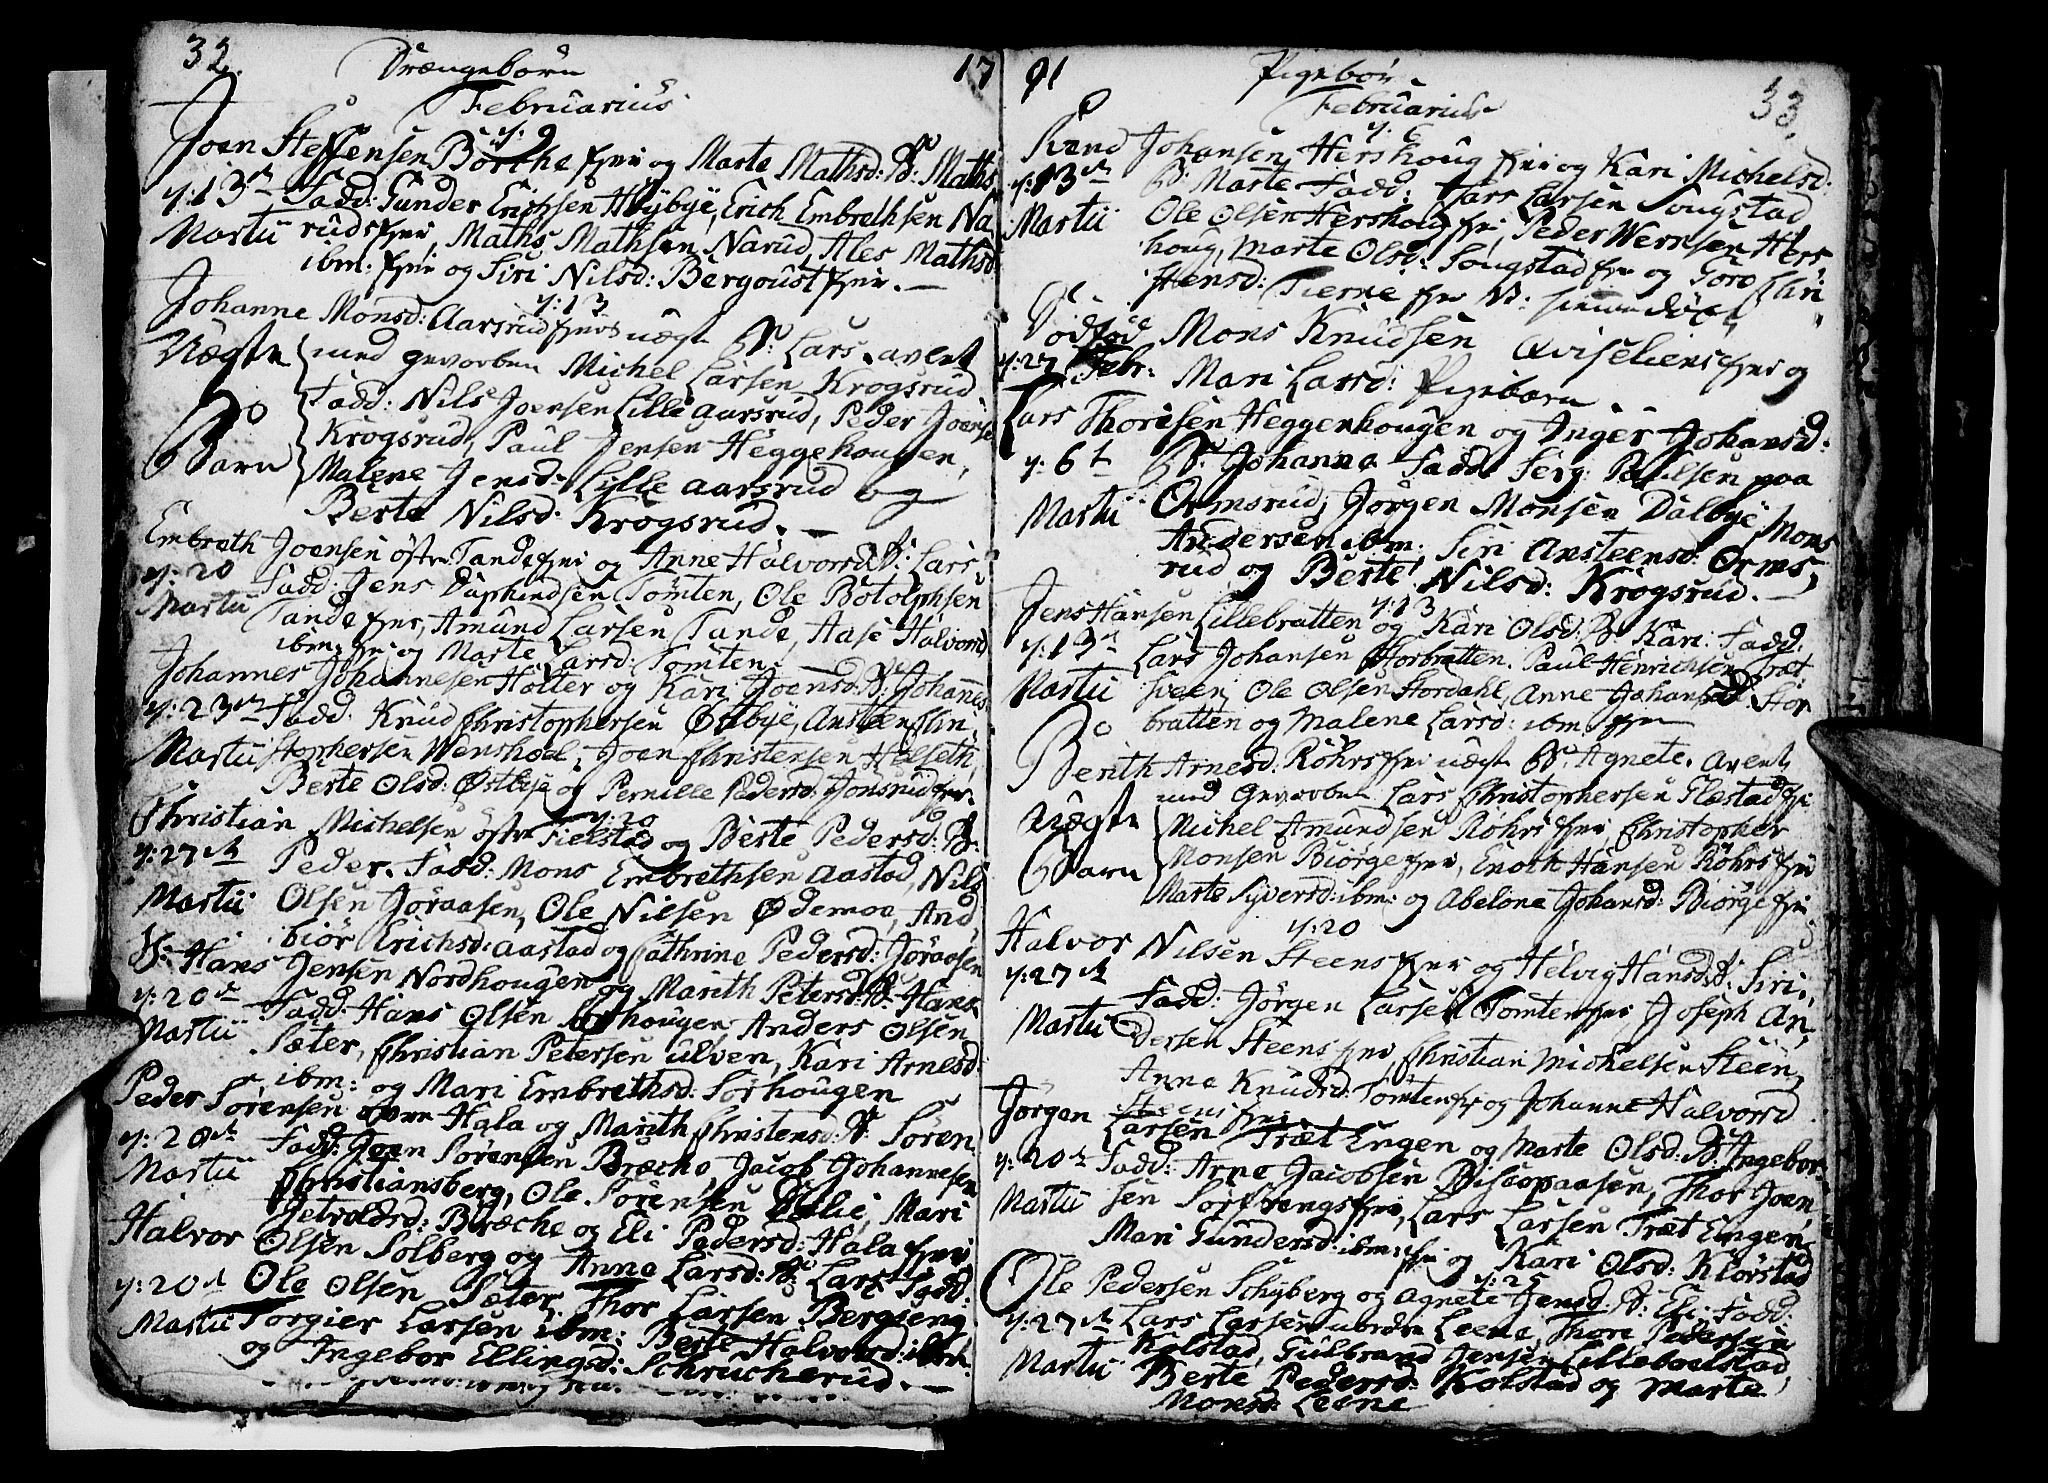 32.
Drængebørn
17
Februarius
d: 9
Joen Steffensen Børche eyer og Marte Mathsd: B: Maths
d: 13de Fadd: Gunder Erichsen Høybye, Erich Embrethsen Na
Martii rudseyer, Maths Mathsen Narud, Ales Mathsd:
ibm: eyer og Siri Nilsd: Bergoust eyer. —
d: 13
Johanne Monsd: Aarsrud uægte B: Lars. avent
Uægte med gevorben Michel Larsen Krogsrud
Fadd: Nils Joensen Lille aarsrud, Peder Joense
Barn Krogsrud, Paul Jensen Heggehougen,
Malene Jensd: Lille aarsrud og
Berte Nilsd: Krogsrud. —
Embreth Joensen østre Tande eyer og Anne Halvorsd B: Lars
d: 20 Fadd: Jens Daphindsen Tomten, Ole Botolphsen
Martii Tande eyer, Amund Larsen Tande, Aase Halvorsd
ibm: eyer og Marte Larsd: Tomten. —
Johannes Johannesen Holter og Kari Joensd: B: Johannes
d: 23de Fadd: Knud Christophersen Østbye, Ansteen Chri
Martii stophersen Wenshoel, Joen Christensen Helseth,
Berte Olsd: Østbye og Pernille Pedersd: Jonsrud eyer.
d: 20
Christian Michelsen østre Fielstad og Berte Pedersd: B:
d: 27de Peder. Fadd: Mons Embrethsen Aastad, Nils
Martii Olsen Jøraasen, Ole Nilsen Ødemoe, And
biør Erichsd: aastad og Cathrine Pedersd: Jøraasen
Hans Jensen Nordhougen og Marith Petersd: B: Hans
d: 20de Fadd: Hans Olsen Sorhougen, Anders Olsen
Martii Sæter, Christian Petersen ulven, Kari Arnesd:
ibm: og Mari Embrethsd: Sorhougen
Peder Sørensen øvre Hala og Marith Christensd: B: Søren
d: 20de Fadd: Joen Sørensen Bræche, Jacob Johannesen
Martii Christiansberg, Ole Sørensen Lie, Mari
Jetvoldsd: Bræche og Eli Pedersd: Hala eyer
Halvor Olsen Solberg og Anne Larsd: B: Lars Fadd:
d: 20de Ole Olsen Sæter, Thor Larsen Bergseng
Martii Torgier Larsen ibm: Berte Halvorsd: ibm
og Ingebor Ellingsd: Schrucherud. —
91
Pigebør
33.
Februarius
d: 6
Svend Johansen Hershoug eyer og Kari Michelsd:
d: 13de B: Marte Fadd: Lars Larsen Songstad
Martii Ole Olsen Hershoug eyer, Peder Wernsen Hers
houg, Marte Olsd: Songstad eyer og Goro Chri
stensd: Tierne eyer
Dødfød Mons Knudsen Qviselien eyer og
d: 27 Febr: Mari Larsd: Pigebarn
Lars Thoresen Heggenhougen og Inger Johansd:
d: 6t B: Johanne Fadd: Serg: Poulsen paa
Martii Ormsrud, Jørgen Monsen Dalbye, Mons
Andersen ibm: Siri Ansteensd: Orms
rud og Berte Nilsd: Krogsrud. —
d: 13
Jens Hansen Lillebratten og Kari Olsd: B: Kari: Fadd:
d: 13de Lars Johansen Storbratten. Paul Henrichsen Træt
Martii sveen, Ole Olsen Stordahl, Anne Johansd Stor
bratten og Malene Larsd: ibm eyer
Berith Arnesd: Røhrs eyer uægte B: Agnete. Avent
med Gevorben Lars Christophersen Glæstad eyer
Uægte Michel Amundsen Røhrs eyer, Christopher
Barn Monsen Biørge eyer, Enoch Hansen Røhrs eyer
Marte Syversd: ibm: og Abelone Johansd: Biørge eyer
d: 20
Halvor Nilsen Steens eyer og Helvig Hansd: B: Siri.
d: 27de Fadd: Jørgen Larsen Tomten eyer, Joseph An
Martii dersen Steens eyer, Christian Michelsen Steen,
Anne Knudsd: Tomten eyer og Johanne Halvorsd
Steens eyer
Jørgen Larsen Træt Engen og Marte Olsd: B: Ingebor
d: 20de Fadd: Arne Jacobsen Biscopaasen, Thor Joen
Martii sen Sorstrengs eyer, Lars Larsen Træt Engen,
Mari Gundersd: ibm: eyer og Kari Olsd: Klørstad
d: 25
Ole Pedersen Schyberg og Agnete Jensd: B: Eli Fadd:
d: 27de Lars Larsen nordre Leene, Thore Pedersen
Martii Kolstad, Gulbrand Jensen Lilleboelstad,
Berte Pedersd: Kolstad og Marte
Monsd: Leene